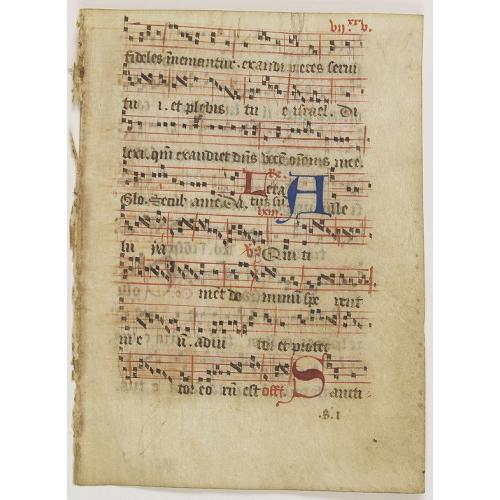 VII. XXV.
fideles inueniantur. exaudi preces serui
tu i. et plebis tu e israel. Di
lexi. qm exaudiet dns
Leta
Glo. Secul. ame. Da. tus su Alle
lu ya Qui ti
ment do minum spe rent
in e u. adiu tor et protec
tor eo rum est off. Sancti
.s. i